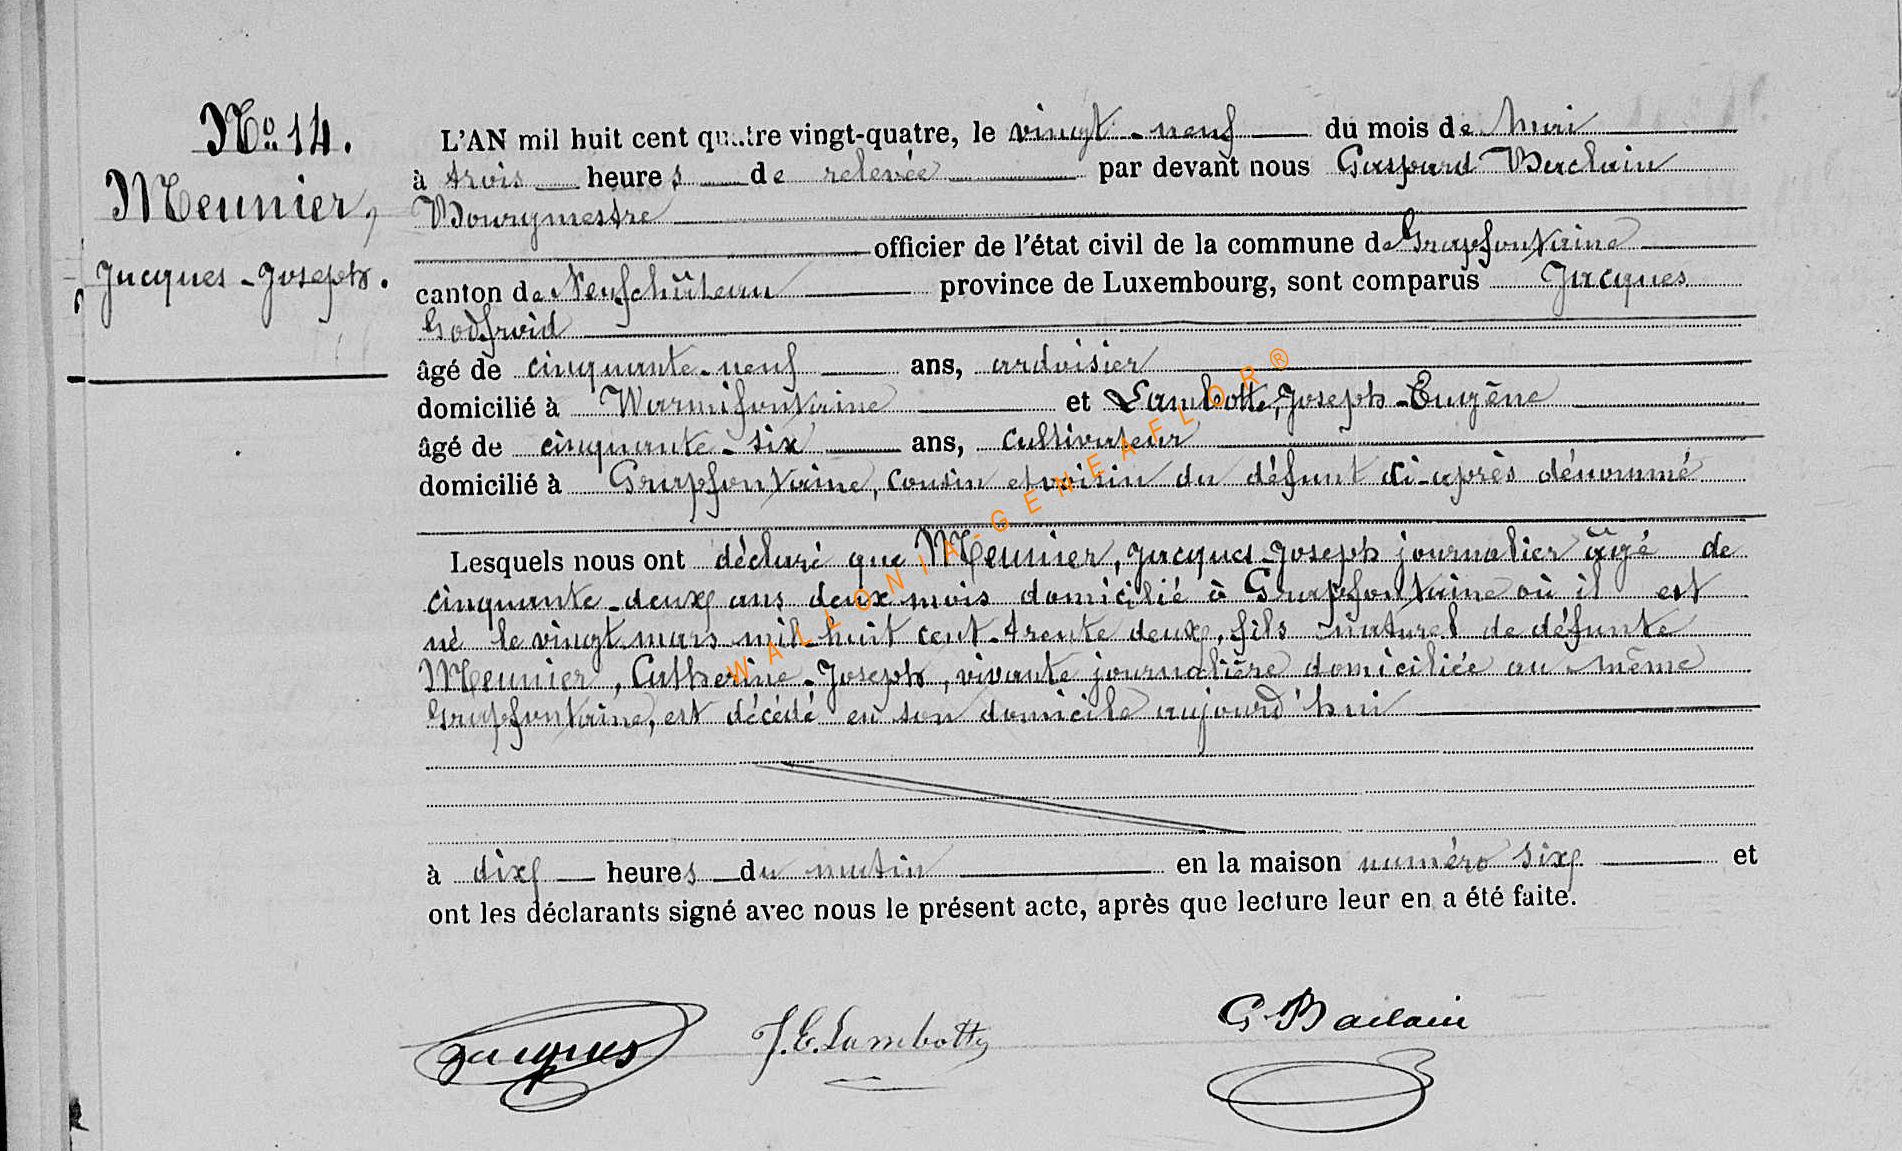 No 14.
Meunier,
Jacques-Joseph.
L'AN mil huit cent quatre vingt-quatre, le vingt-neuf du mois de Mai
à trois heures de relevée par devant nous Gaspard Baclain
Bourgmestre
officier de l'état civil de la commune de Grapfontaine
canton de Neufchâteau province de Luxembourg, sont comparus Jacques
Godfroid
âgé de cinquante-neuf ans, ardoisier
domicilié à Warmifontaine et Lambotte, Joseph-Eugène
âgé de cinquante-six ans, cultivateur
domicilié à Grapfontaine, cousin et voisin du défunt ci-après dénommé
Lesquels nous ont déclaré que Meunier, Jacques-Joseph journalier âgé de
cinquante-deux ans deux mois domicilié à Grapfontaine où il est
né le vingt mars mil-huit cent-trente deux, fils naturel de défunte
Meunier, Catherine-Joseph, vivante journalière domiciliée au même
Grapfontaine, est décédé en son domicile aujourd'hui
à dix heures du matin en la maison numéro six et
ont les déclarants signé avec nous le présent acte, après que lecture leur en a été faite.
Jacques J.E. Lambotte G. Baclain
WALLONIA-GENEAFLOR®